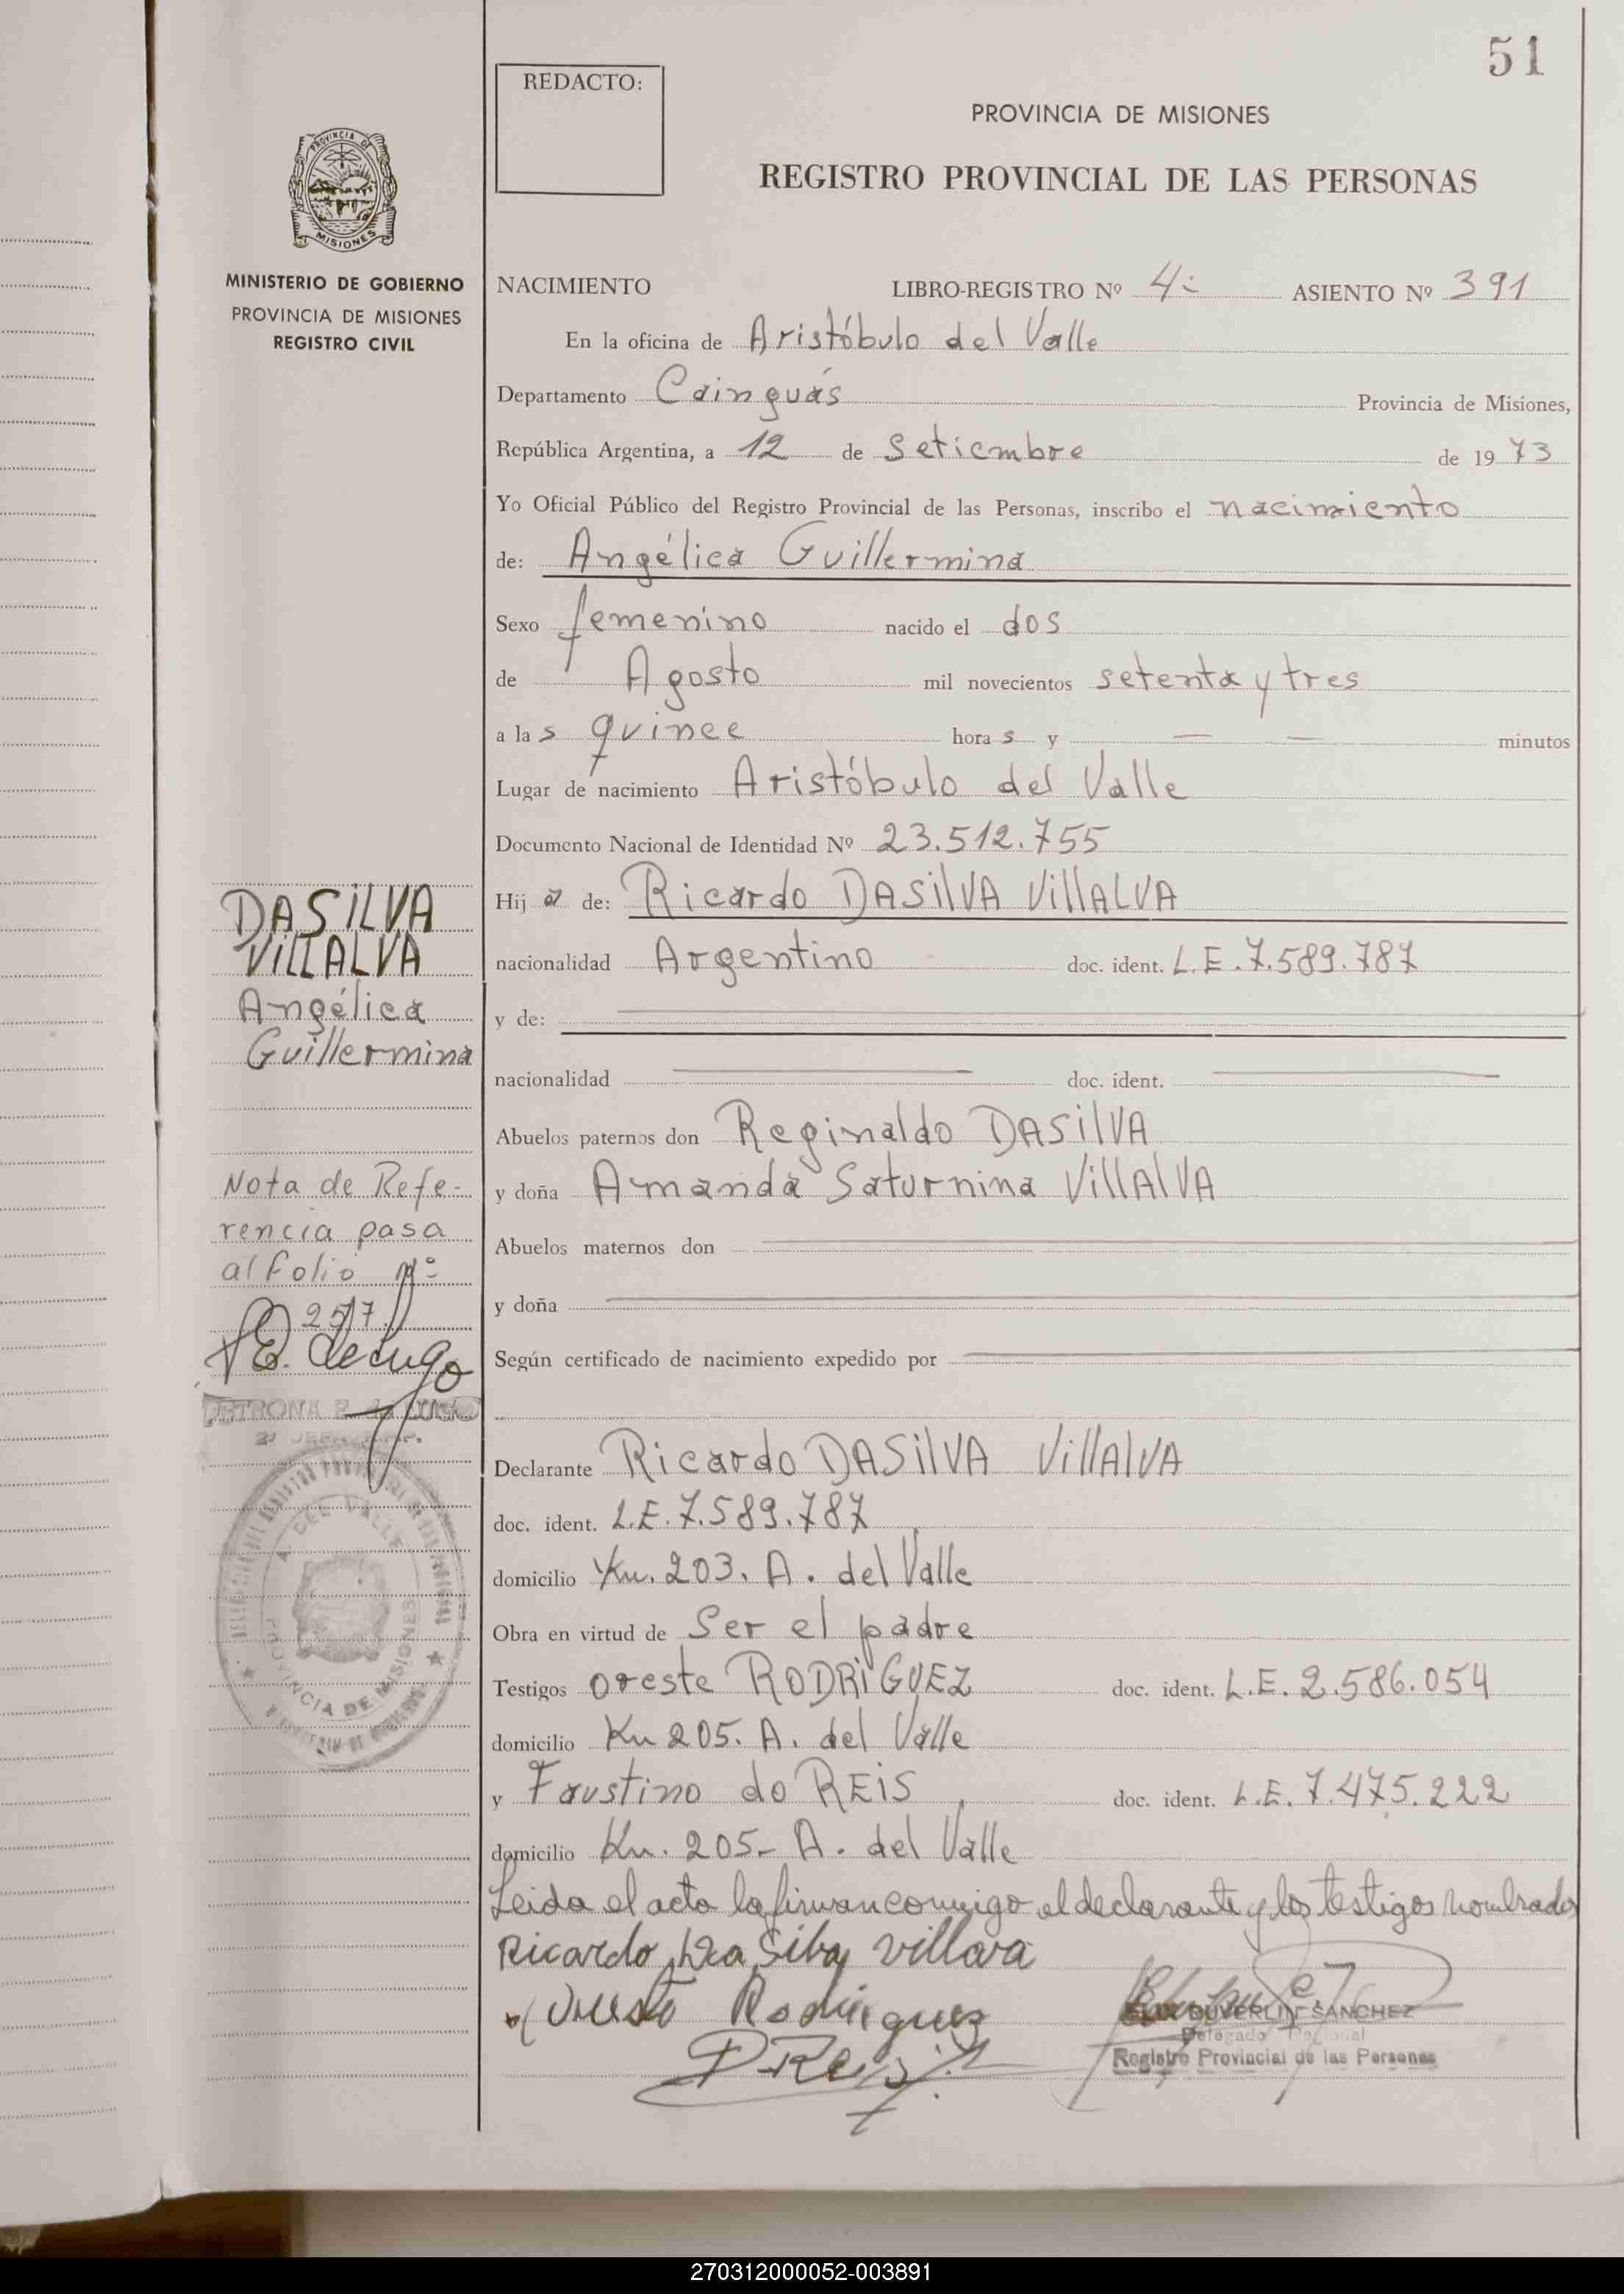 51
REDACTO:
PROVINCIA DE MISIONES
REGISTRO PROVINCIAL DE LAS PERSONAS
PROVINCIA DE
MISIONES
MINISTERIO DE GOBIERNO
PROVINCIA DE MISIONES
REGISTRO CIVIL
NACIMIENTO LIBRO-REGISTRO Nº 4: ASIENTO Nº 391
En la oficina de Aristóbulo del Valle
Departamento Cainguás Provincia de Misiones,
República Argentina, a 12 de Setiembre de 1973
Yo Oficial Público del Registro Provincial de las Personas, inscribo el nacimiento
de: Angélica Guillermina
Sexo femenino nacido el dos
de Agosto mil novecientos setenta y tres
a las quince horas y — — minutos
Lugar de nacimiento Aristóbulo del Valle
Documento Nacional de Identidad Nº 23.512.755
Hija de: Ricardo DASILVA VILLALVA
nacionalidad Argentino doc. ident. L.E. 7.589.787
y de:
nacionalidad doc. ident.
Abuelos paternos don Reginaldo DASILVA
y doña Amanda Saturnina VILLALVA
Abuelos maternos don
y doña
Según certificado de nacimiento expedido por
Declarante Ricardo DASILVA VILLALVA
doc. ident. L.E. 7.589.787
domicilio Km. 203. A. del Valle
Obra en virtud de Ser el padre
Testigos Oreste RODRIGUEZ doc. ident. L.E. 2.586.054
domicilio Km 205. A. del Valle
y Faustino do REIS doc. ident. L.E. 7.475.222
domicilio Km. 205- A. del Valle
Leida el acta la firman conmigo el declarante y los testigos nombrados
Ricardo Da Silva Villava
Oreste Rodriguez
DUVERLIN SANCHEZ
Delegado Personal
Registro Provincial de las Personas
F Reis
DASILVA
VILLALVA
Angélica
Guillermina
Nota de Refe-
rencia pasa
al folio Nº
257
E. de Lugo
PETRONA E. de LUGO
DEL VALLE
PROVINCIA DE MISIONES
270312000052-003891